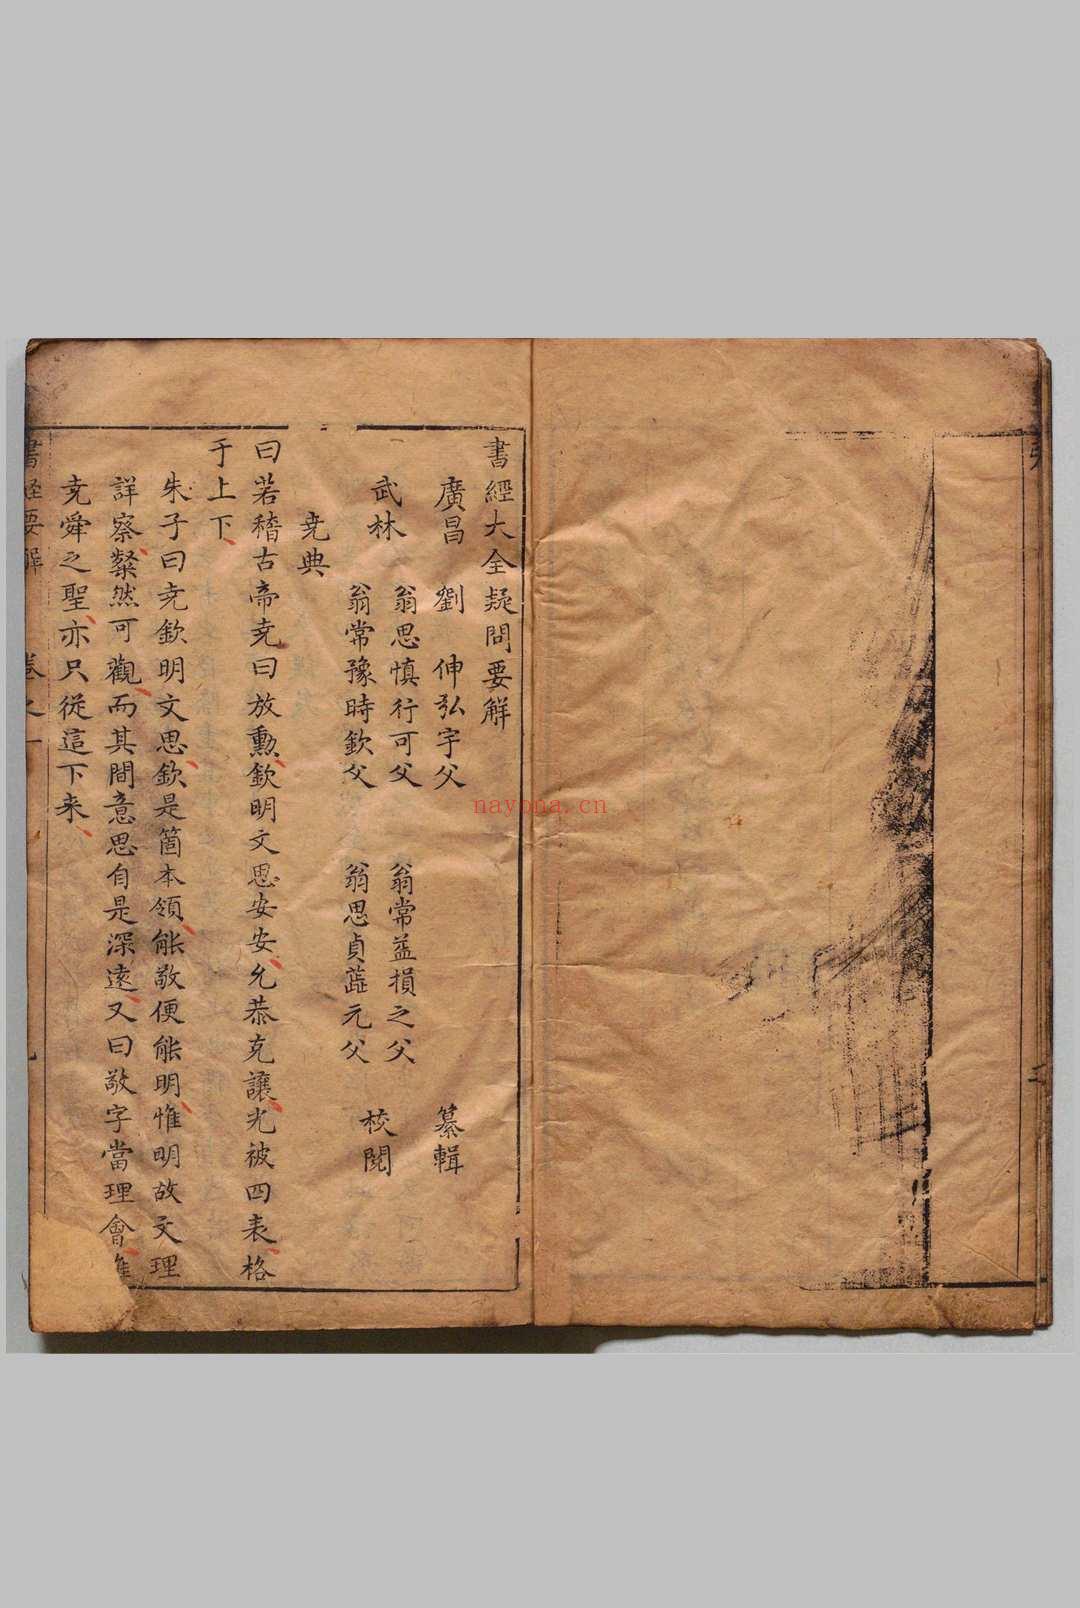 書經大全疑問要解
廣昌 劉 伸弘宇父 纂輯
武林 翁思慎行可父 翁常益損之父
翁常豫時欽父 翁思貞蓝元父 校閱
尭典
曰若稽古帝尭曰放勲欽明文思安安允恭克讓光被四表格
于上下
朱子曰尭欽明文思欽是箇本領能敬便能明惟明故文理
詳察粲然可觀而其間意思自是深遠又曰敬字當理會
尭舜之聖亦只從這下来
書經要解 卷之一
nayona.cn